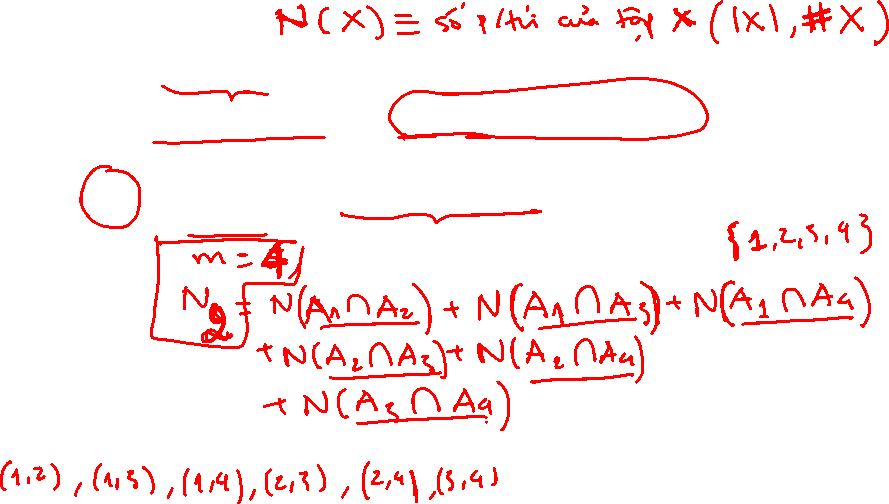 N(X) ≡ số p/tử của tập X (|X|, #X)
{1,2,3,4}
m = 4,
N₂ = N(A₁∩A₂) + N(A₁∩A₃) + N(A₁∩A₄)
+ N(A₂∩A₃) + N(A₂∩A₄)
+ N(A₃∩A₄)
(1,2), (1,3), (1,4), (2,3), (2,4), (3,4)